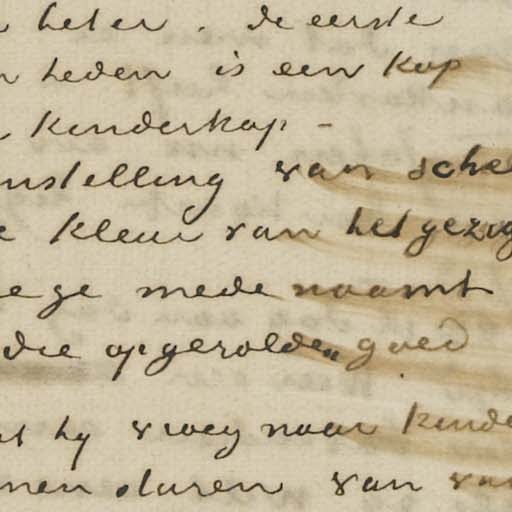 beter. de eerste
heden is een kop
kinderkop -
nstelling van schel
kleur van het gezig
ege mede naamt
die opgerolden goed
hy vroeg naar kinde
men duren van van